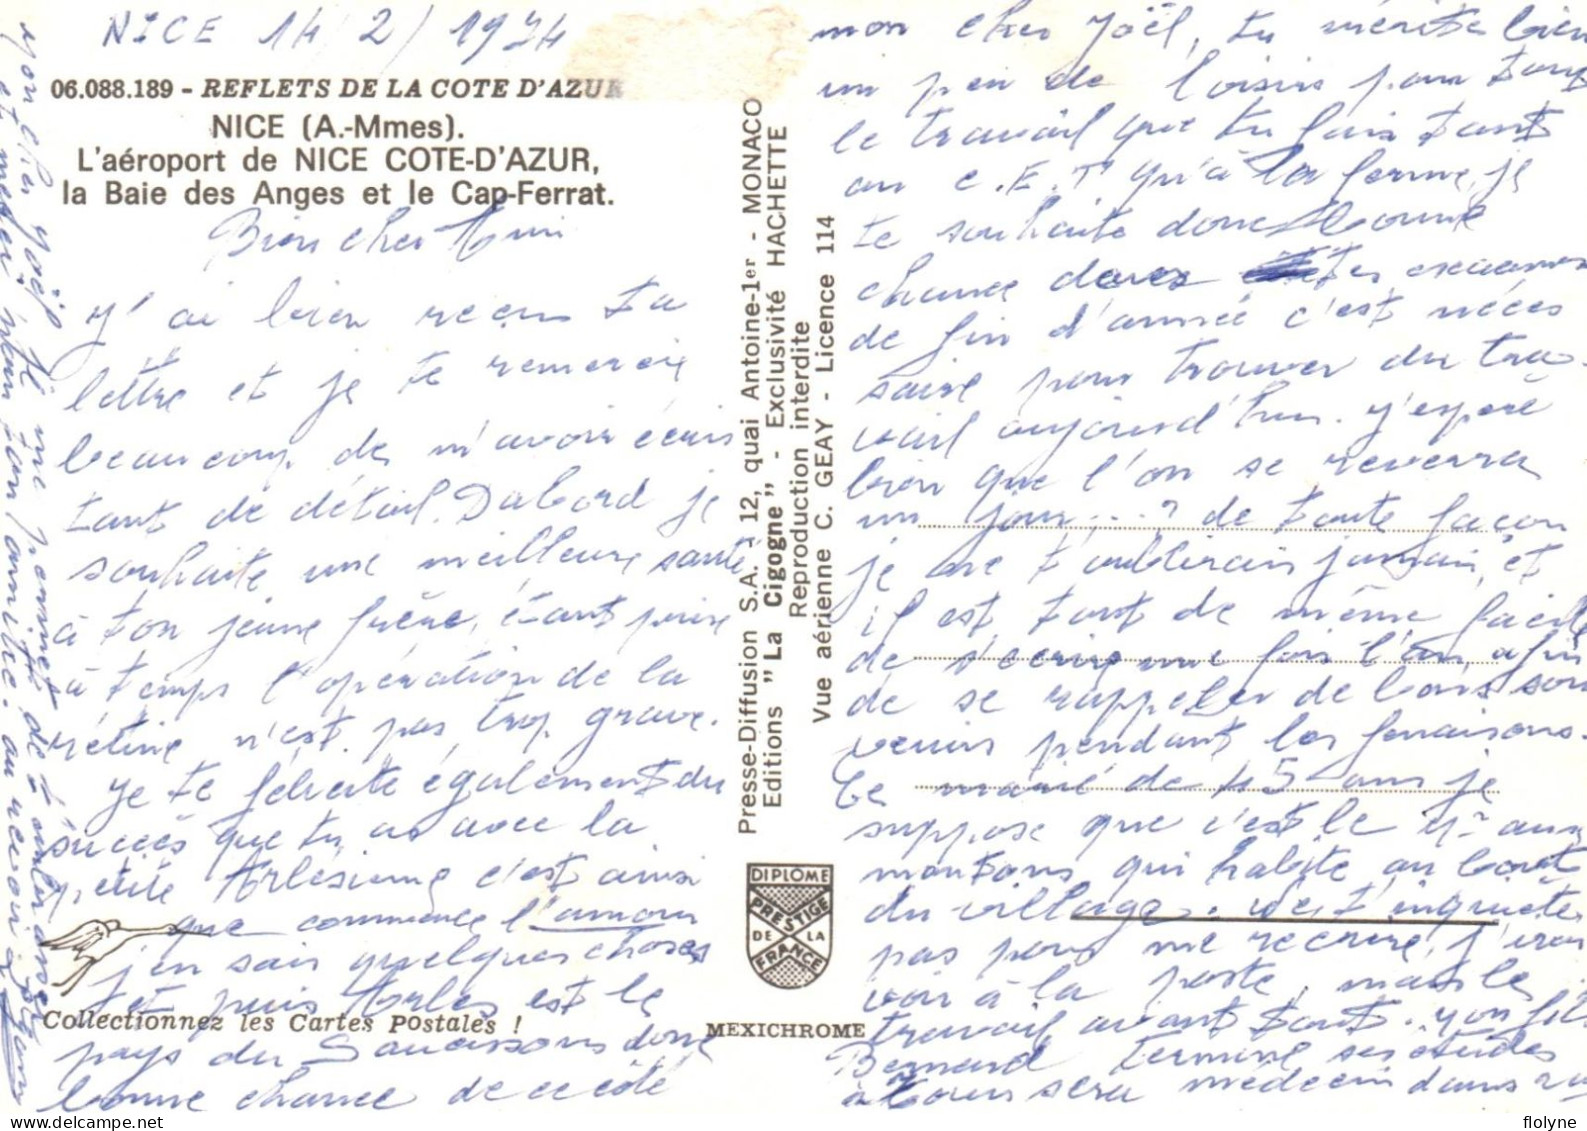 NICE 14/2/1974
06.088.189 - REFLETS DE LA COTE D'AZUR
NICE (A.-Mmes).
L'aéroport de NICE COTE-D'AZUR,
la Baie des Anges et le Cap-Ferrat.
Bien cher Ami
J'ai bien reçu ta
lettre et je te remercie
beaucoup de m'avoir écris
tant de détail. Dabord je
souhaite une meilleure santé
à ton jeune frère, étant prise
à temps l'opération de la
rétine n'est pas trop grave.
Je te félicite également du
succès que tu as avec la
petite Arlésienne c'est ainsi
que commence l'amour
j'en sais quelques choses
et puis Arles est le
Collectionnez les Cartes Postales !
pays du Saucissons donc
bonne chance de ce côté
mon cher Joël, tu mérite bien
un peu de loisirs pour tous
le travail que tu fais tant
au C.E.T qu'à la ferme, je
te souhaite donc bonne
chance dans tes examens
de fin d'année c'est néces
saire pour trouver du tra-
vail aujourd'hui. J'espère
bien que l'on se reverra
un jour....? de toute façon
je ne t'oublierais jamais, et
il est tout de même facile
de s'écrire une fois l'an, afin
de se rappeler de bons sou
venirs pendant les fenaisons.
Ce marié de 45 ans je
suppose que c'est le Mr aux
moutons qui habite au bout
du village. Ne t'inquiètes
pas pour me récrire, j'irai
voir à la poste, mais le
travail avant tout. Mon fils
Bernard termine ses études
à Tours sera médecin dans
Mon cher Joël je me permet de t'embrasser
et merci pour ton amitiée. au revoir
Presse-Diffusion S.A. - 12, quai Antoine-1er - MONACO
Editions "La Cigogne" - Exclusivité HACHETTE
Reproduction interdite
Vue aérienne C. GEAY - Licence 114
DIPLOME
PRESTIGE
DE LA
FRANCE
MEXICHROME
folyne